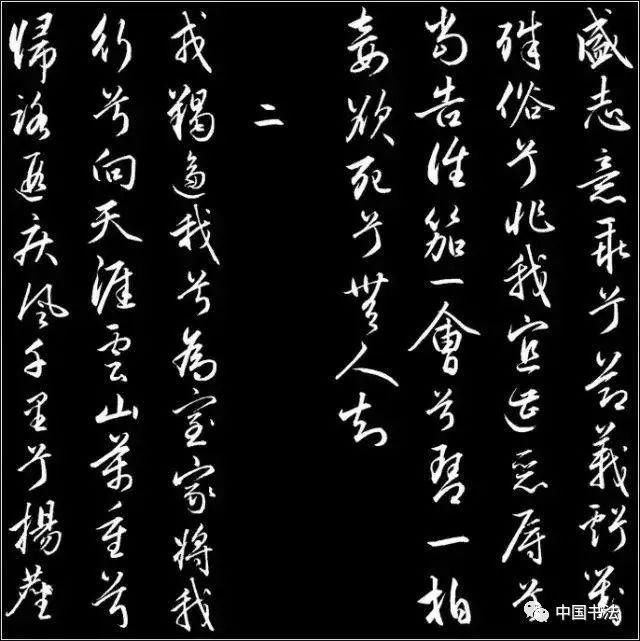 盛志意乖兮節義虧對
殊俗兮非我宜遭惡辱兮
當告誰笳一會兮琴一拍
妾欲死兮無人知
二
戎羯逼我兮為室家將我
行兮向天涯雲山萬重兮
歸路遐疾風千里兮揚塵
中国书法